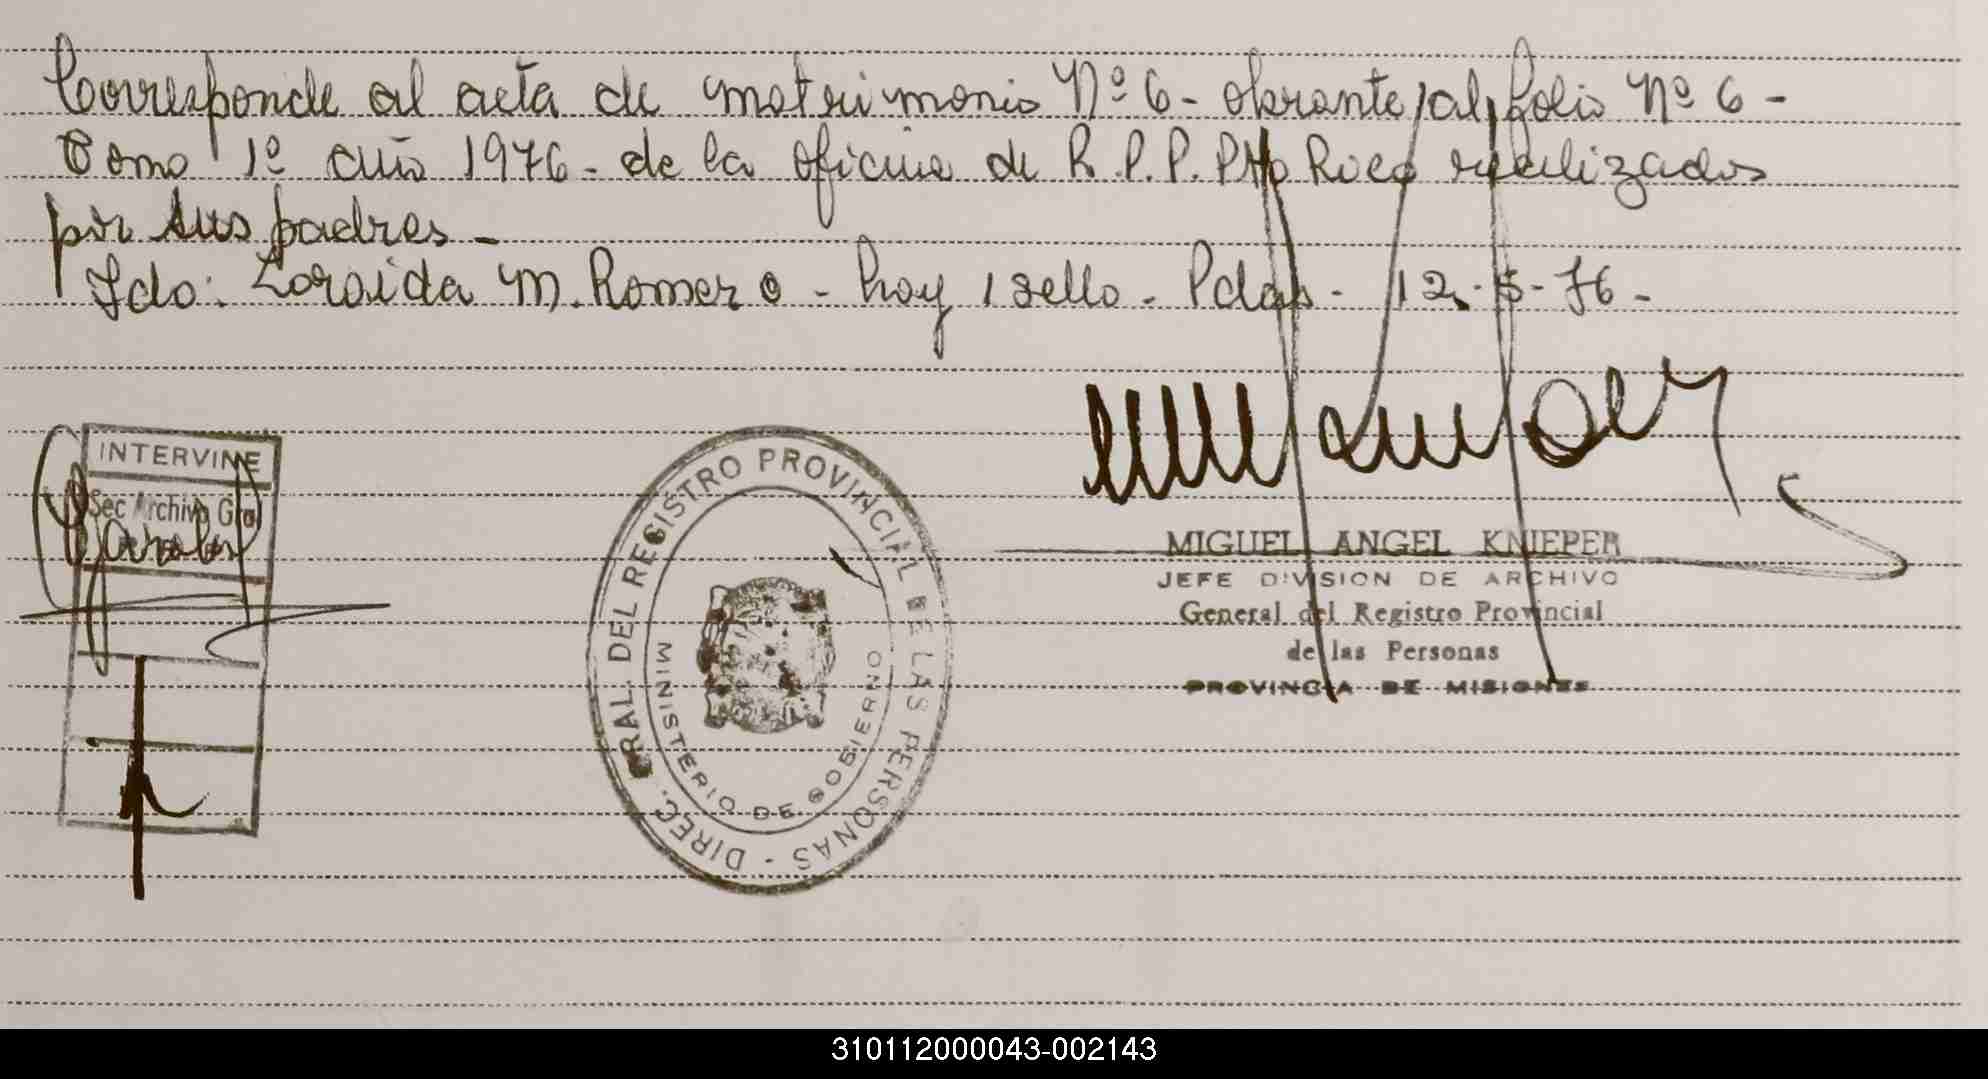 Corresponde al acta de matrimonio Nº 6 - obrante al folio Nº 6 -
Tomo 1º año 1976 - de la oficina de R.P.P. Pto Rico realizados
por sus padres -
Fdo: Zoraida M. Romero - hay 1 sello - Pdas - 12-5-76 -
INTERVINE
Sec Archivo Gral
DIREC. GRAL. DEL REGISTRO PROVINCIAL DE LAS PERSONAS -
MINISTERIO DE GOBIERNO
MIGUEL ANGEL KNIEPER
JEFE DIVISION DE ARCHIVO
General del Registro Provincial
de las Personas
PROVINCIA DE MISIONES
310112000043-002143